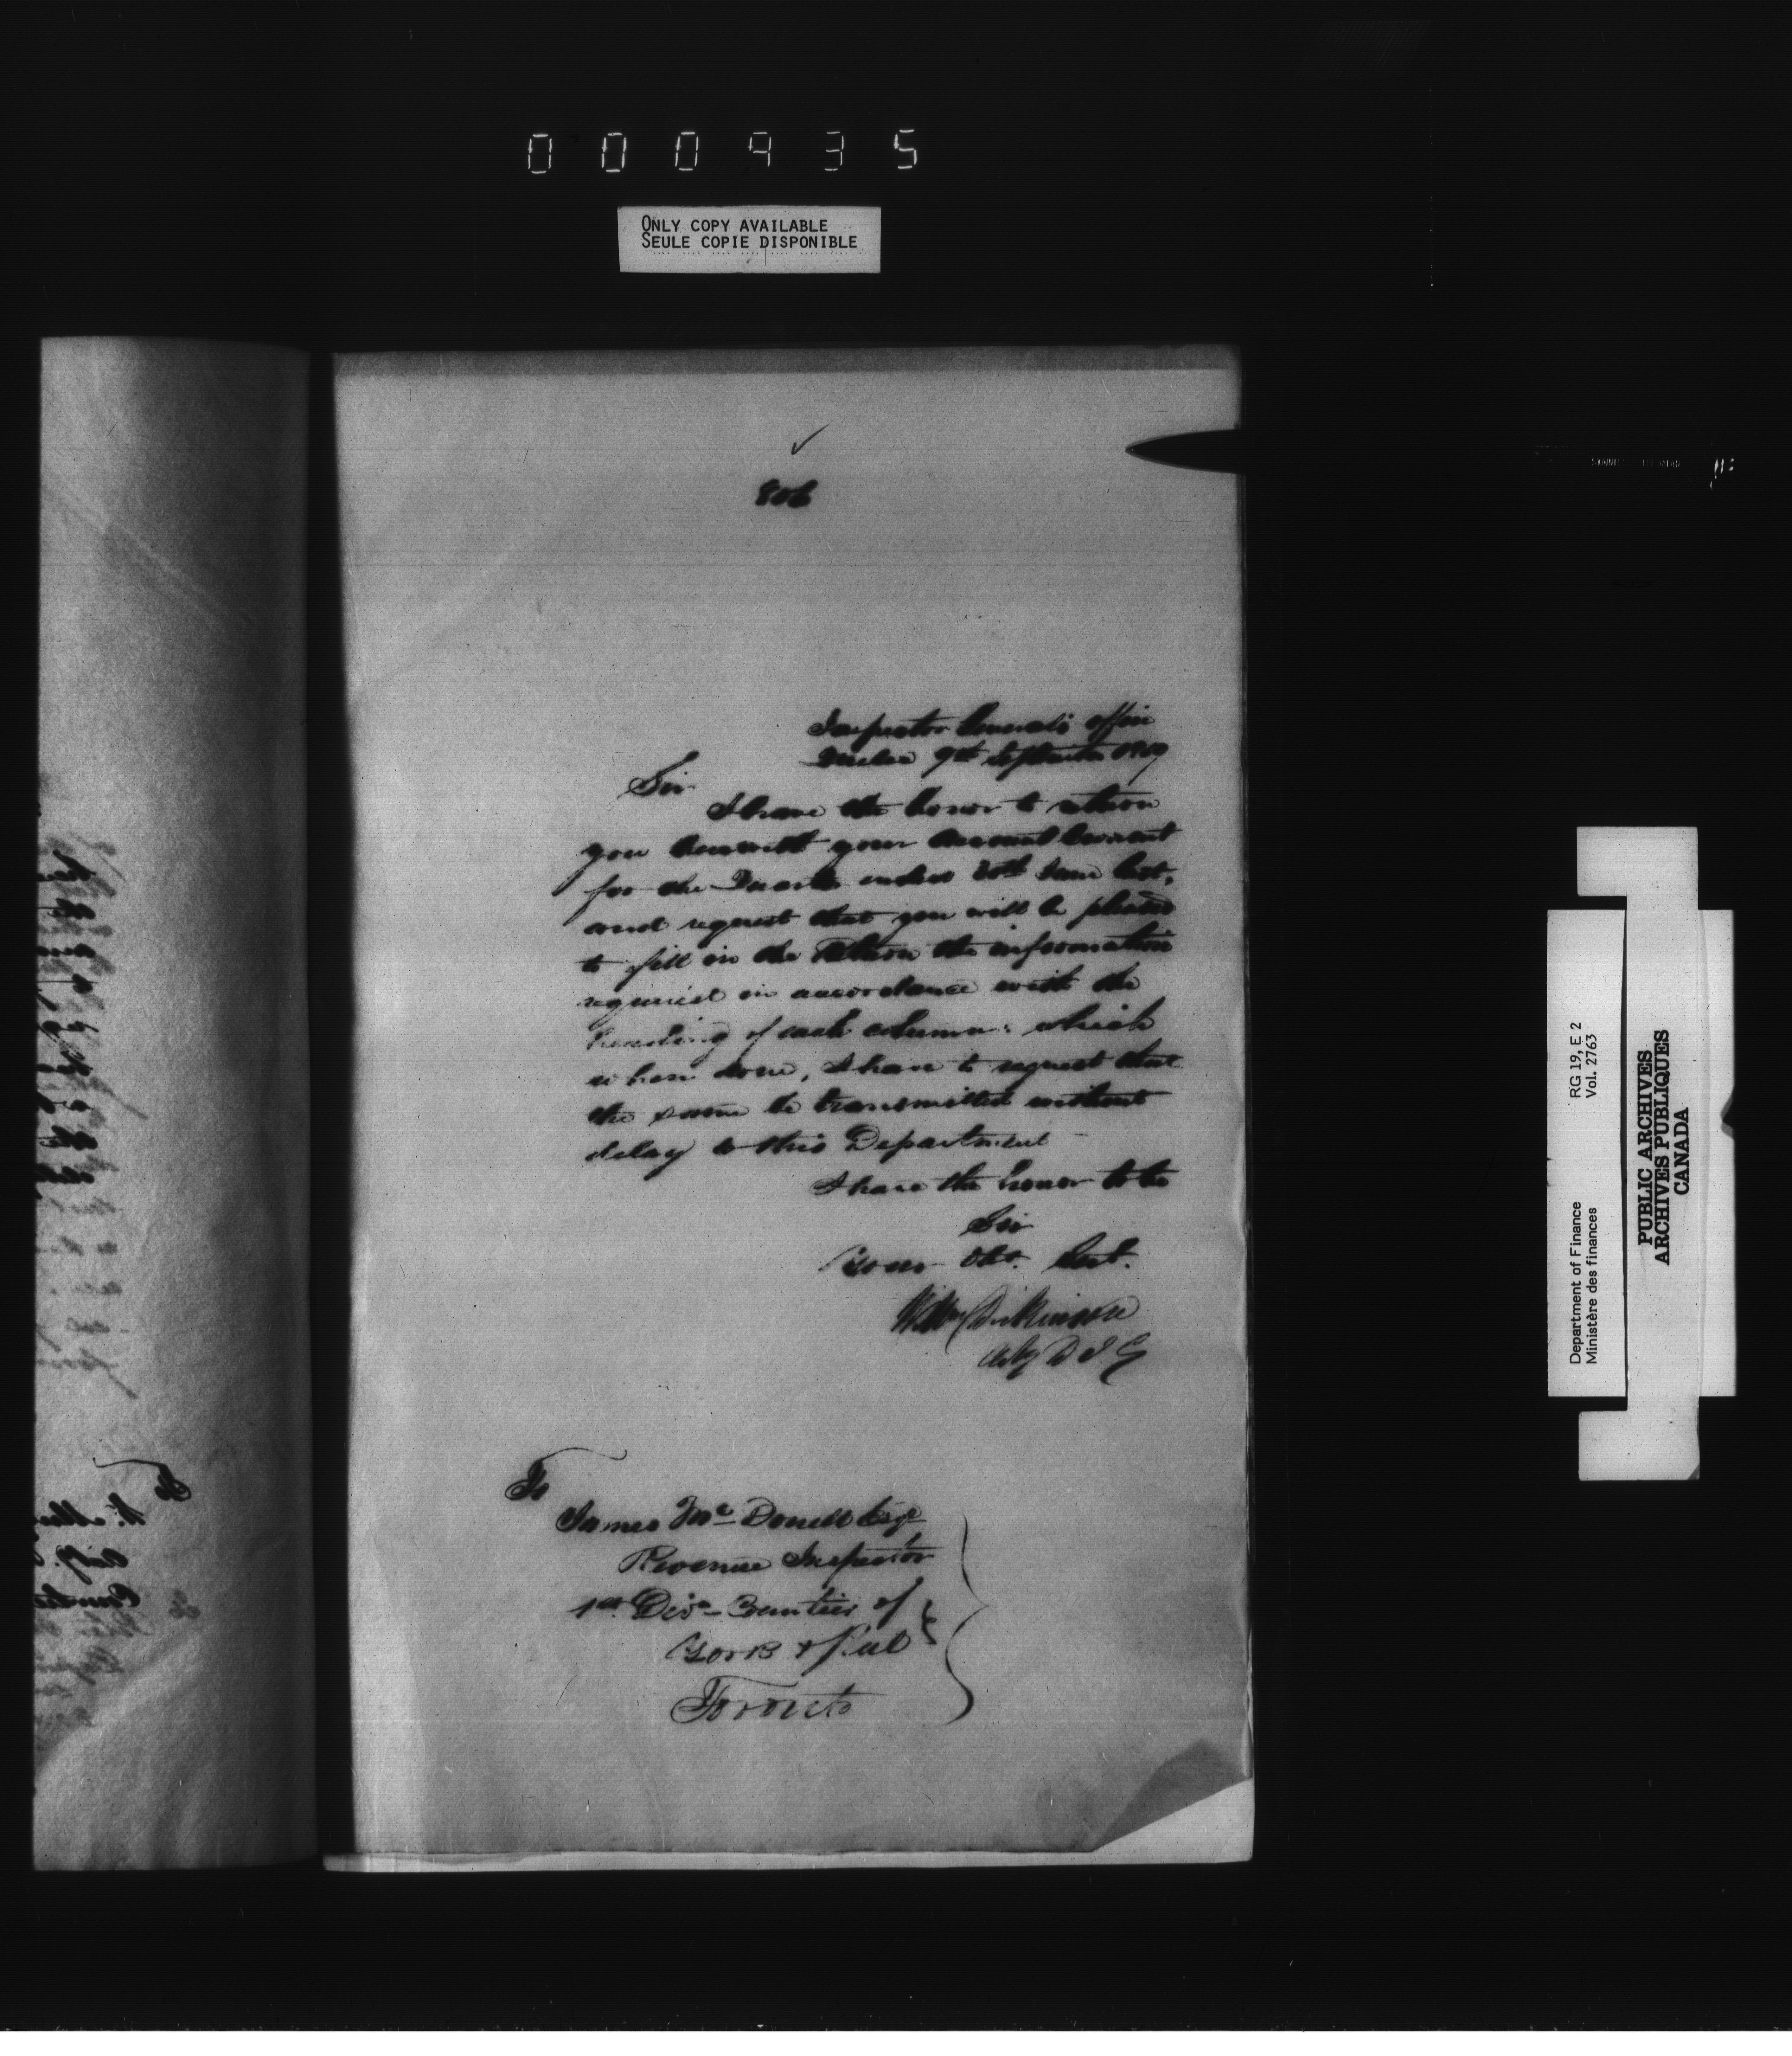 000935
ONLY COPY AVAILABLE
SEULE COPIE DISPONIBLE
✓
806
Inspector General's Office
Quebec 9th September
Sir
I have the honor to return
you herewith your Account Current
for the Quarter ended 30th June last,
and request that you will be pleased
to fill in the Return the information
required in accordance with the
heading of each column: which
when done, I have to request that
the same be transmitted without
delay to this Department
I have the honor to be
Sir
Your Obt. Sert.
Wm Dickinson
Actg D I G
To
James Mc Donell Esqe
Revenue Inspector
1st Divn Counties of
York & Peel
Toronto
RG 19, E 2
Vol. 2763
Department of Finance
Ministère des finances
PUBLIC ARCHIVES
ARCHIVES PUBLIQUES
CANADA